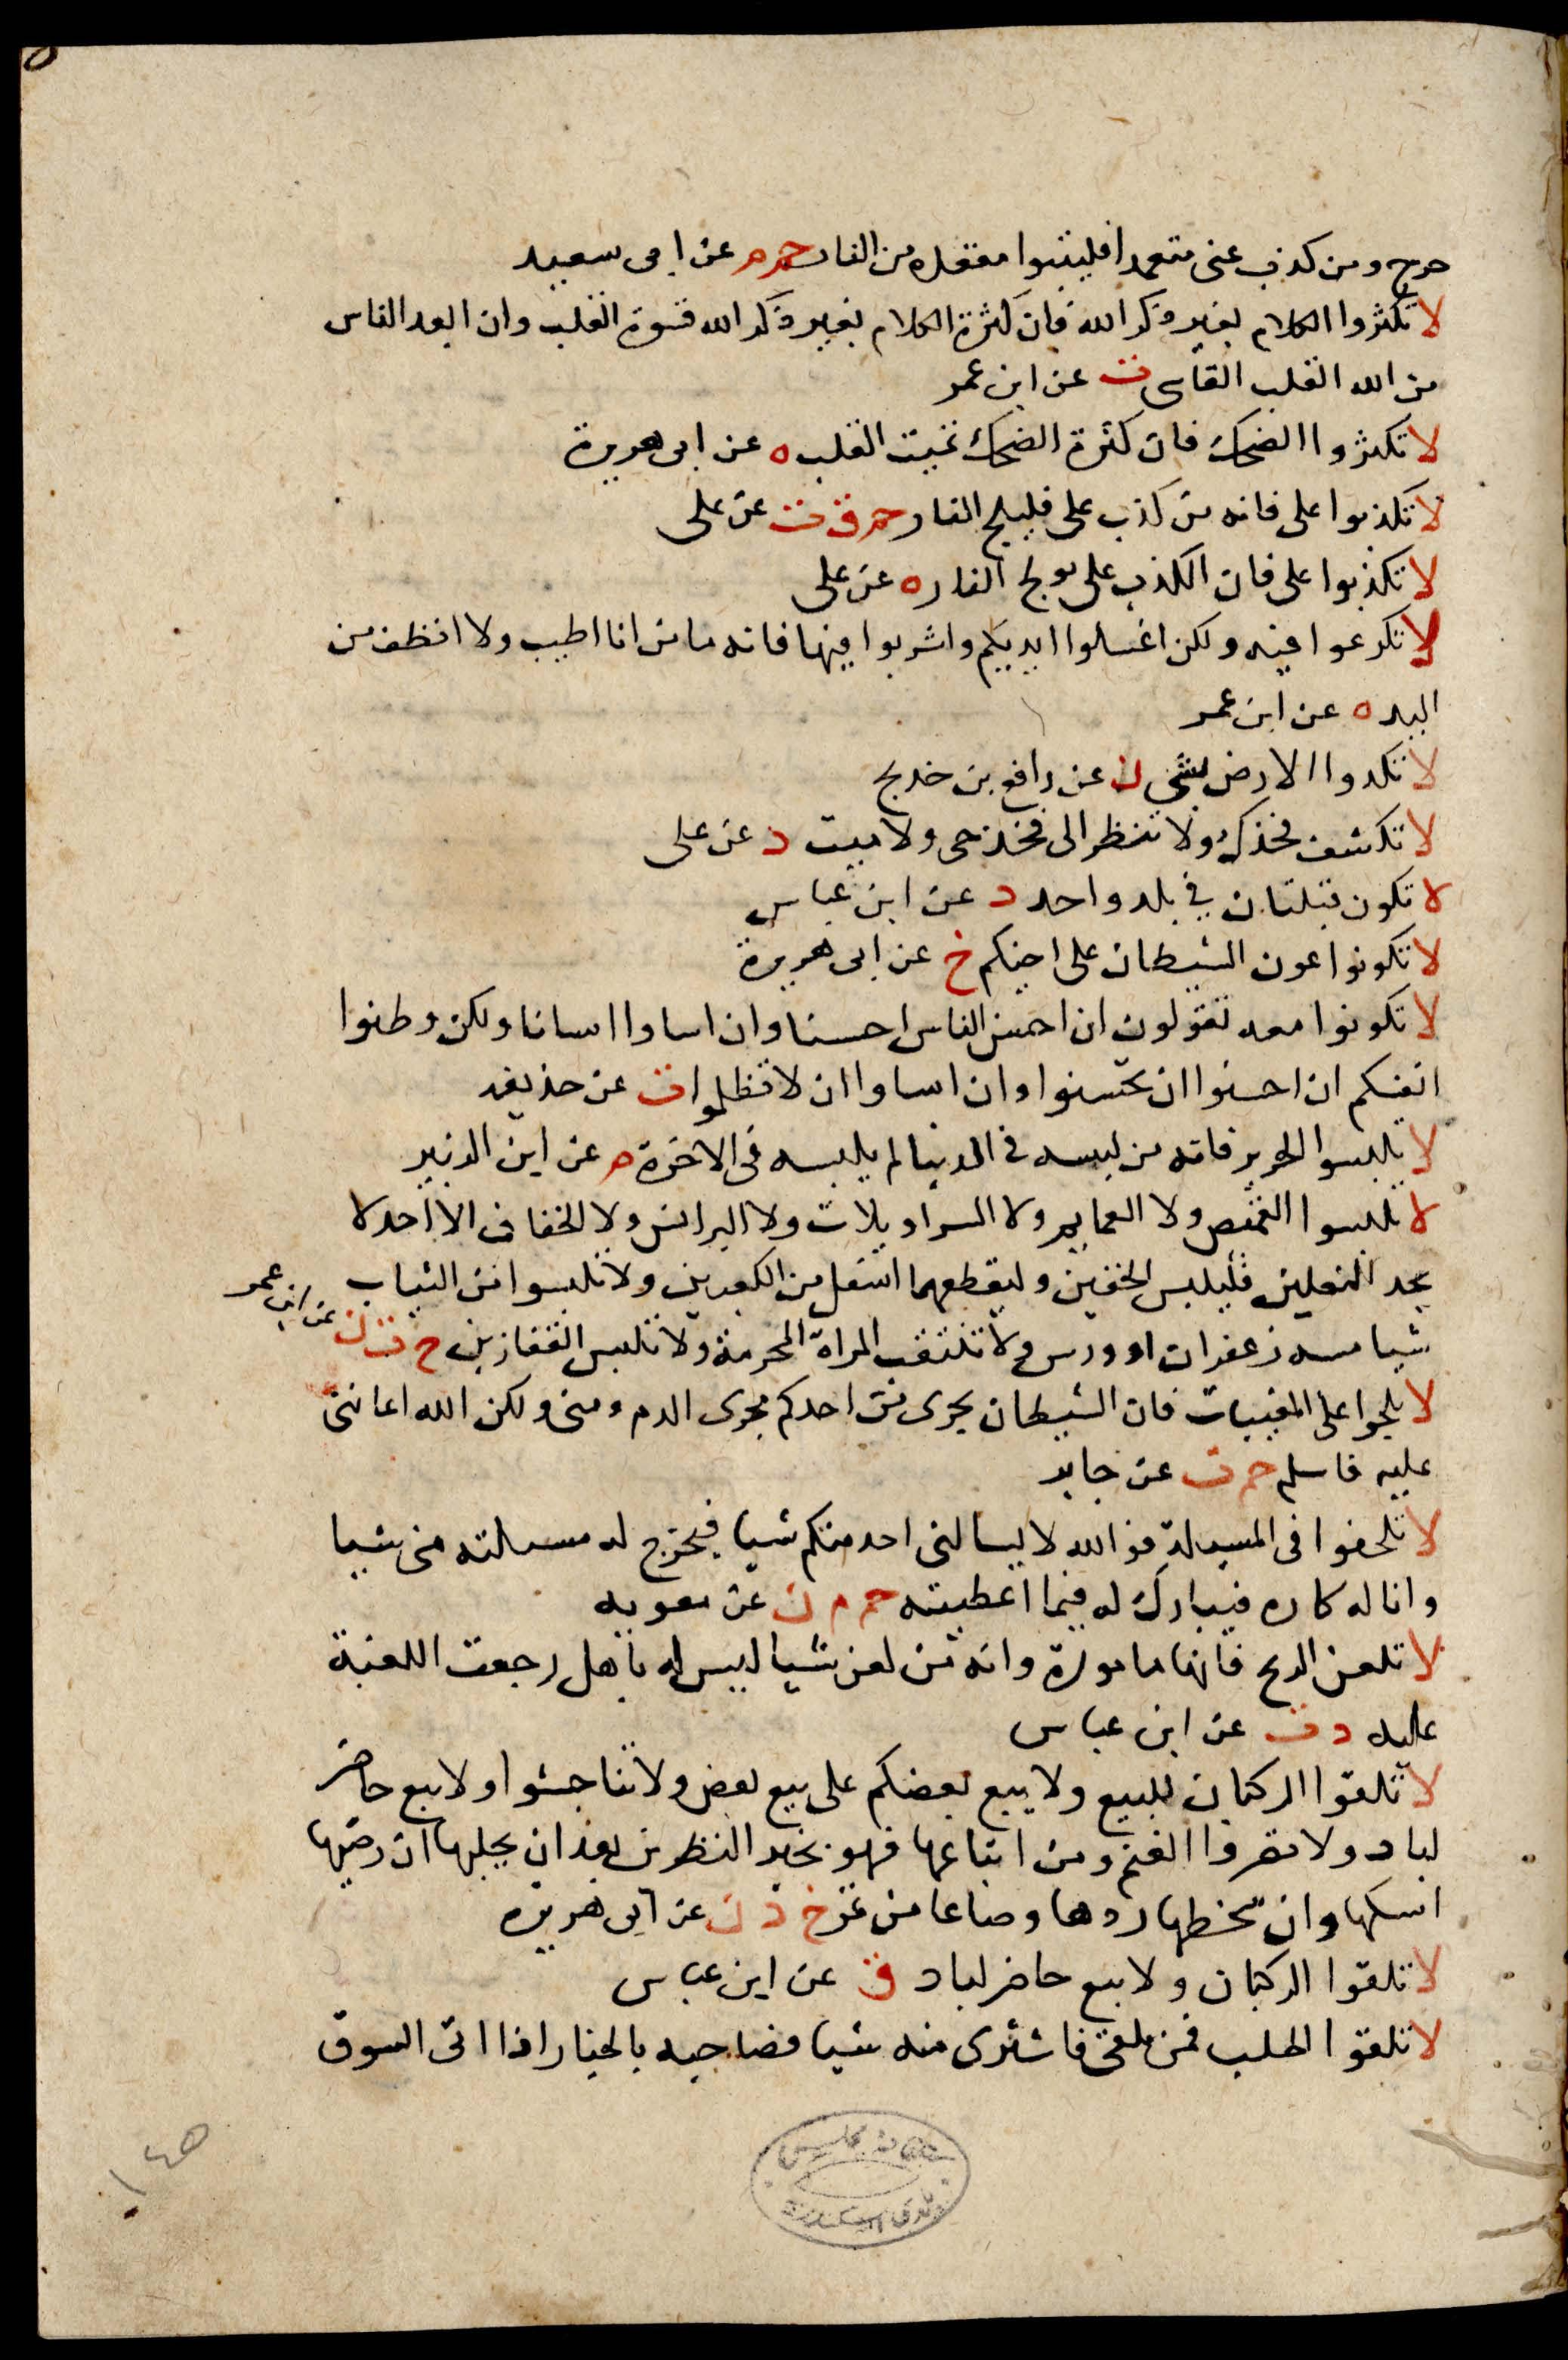 حرج ومن كذب عنى متعمدا فليتبوا مقعده من النار حم م عن ابى سعيد
لا تكثروا الكلام بغير ذكر الله فان كثرة الكلام بغير ذكر الله قسوة القلب وان ابعد الناس
من الله القلب القاسى ت عن ابن عمر
لا تكثروا الضحك فان كثرة الضحك تميت القلب ه عن ابى هريرة
لا تكذبوا على فانه من كذب على فليلج النار حم ق ت عن على
لا تكذبوا على فان الكذب على يولج النار ه عن على
لا تكرعوا فيه ولكن اغسلوا ايديكم واشربوا فيها فانه ما من انا اطيب ولا انظف من
اليد ه عن ابن عمر
لا تكدوا الارض بشى ن عن رافع بن خديج
لا تكشف فخذك ولا تنظر الى فخذ حى ولا ميت د عن على
لا تكون قبلتان في بلد واحد د عن ابن عباس
لا تكونوا عون الشيطان على اخيكم خ عن ابى هريرة
لا تكونوا امعه تقولون ان احسن الناس احسنا وان اساوا اسانا ولكن وطنوا
انفسكم ان احسنوا ان تحسنوا وان اساوا ان لا تظلموا ت عن حذيفه
لا تلبسوا الحرير فانه من لبسه فى الدنيا لم يلبسه فى الاخرة م عن ابن الزبير
لا تلبسوا القمص ولا العمايم ولا السراويلات ولا البرانس ولا الخفاف الا احد لا
يجد النعلين فليلبس الخفين وليقطعهما اسفل من الكعبين ولا تلبسوا من الثياب
شيا مسه زعفران او ورس ولا تنتقب المراة المحرمة ولا تلبس القفازين خ ت ن عن ابن عمر
لا تلجوا على المغيبات فان الشيطان يجرى من احدكم مجرى الدم ومنى ولكن الله اعاننى
عليه فاسلم حم ت عن جابر
لا تلحفوا فى المسيلة فوالله لا يسالنى احد منكم شيا فيخرج له مسيلته منى شيا
وانا له كاره فيبارك له فيما اعطيته حم م ن عن معويه
لا تلعن الريح فانها مامورة وانه من لعن شيا ليس له باهل رجعت اللعنة
عليه د ت عن ابن عباس
لا تلقوا الركبان للبيع ولا يبع بعضكم على بيع بعض ولا تناجشوا ولا يبع حاضر
لباد ولا تصروا الغنم ومن ابتاعها فهو بخير النظرين بعد ان يحلبها ان رضيها
امسكها وان سخطها ردها وصاعا من تمر خ د ن عن ابى هريره
لا تلقوا الركبان ولا يبع حاضر لباد ق عن ابن عباس
لا تلقوا الجلب فمن تلقى فاشترى منه شيا فصاحبه بالخيار اذا اتى السوق